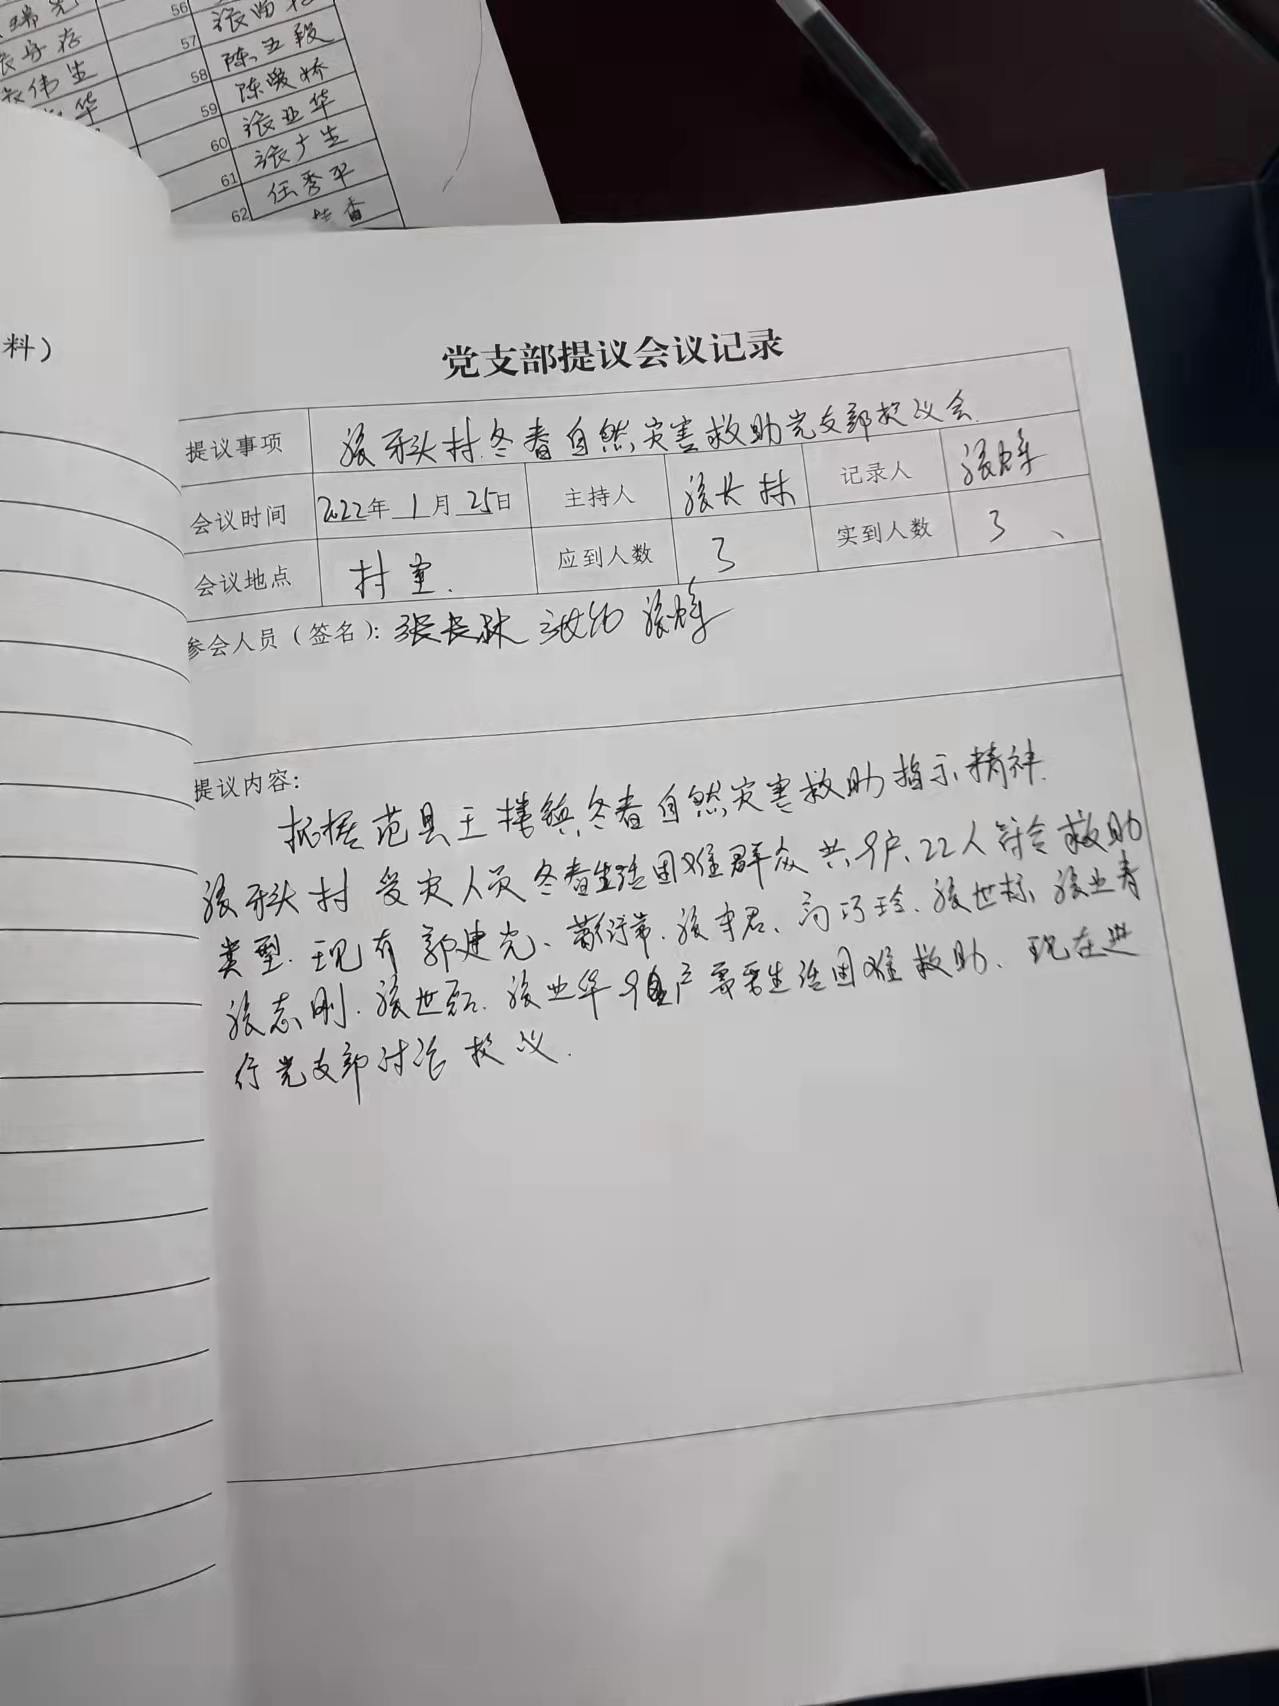 56
57 陈五段
58 陈爱娇
59 张亚华
60 张广生
61 任秀平
62 香
伟生
华
料）
党支部提议会议记录
提议事项 张牙头村冬春自然灾害救助党支部提议会
会议时间 2022年 1月 25日 主持人 张长林 记录人
会议地点 村室. 应到人数 3 实到人数 3、
参会人员（签名）: 张长林
提议内容:
根据范县王楼镇冬春自然灾害救助指示精神.
张牙头村受灾人员冬春生活困难群众共9户、22人符合救助
类型.现有郭建光、张孝君、高巧玲、张世标、张业春
张志刚.张世磊.张业华9户需要生活困难救助、现在进
行党支部讨论提议.